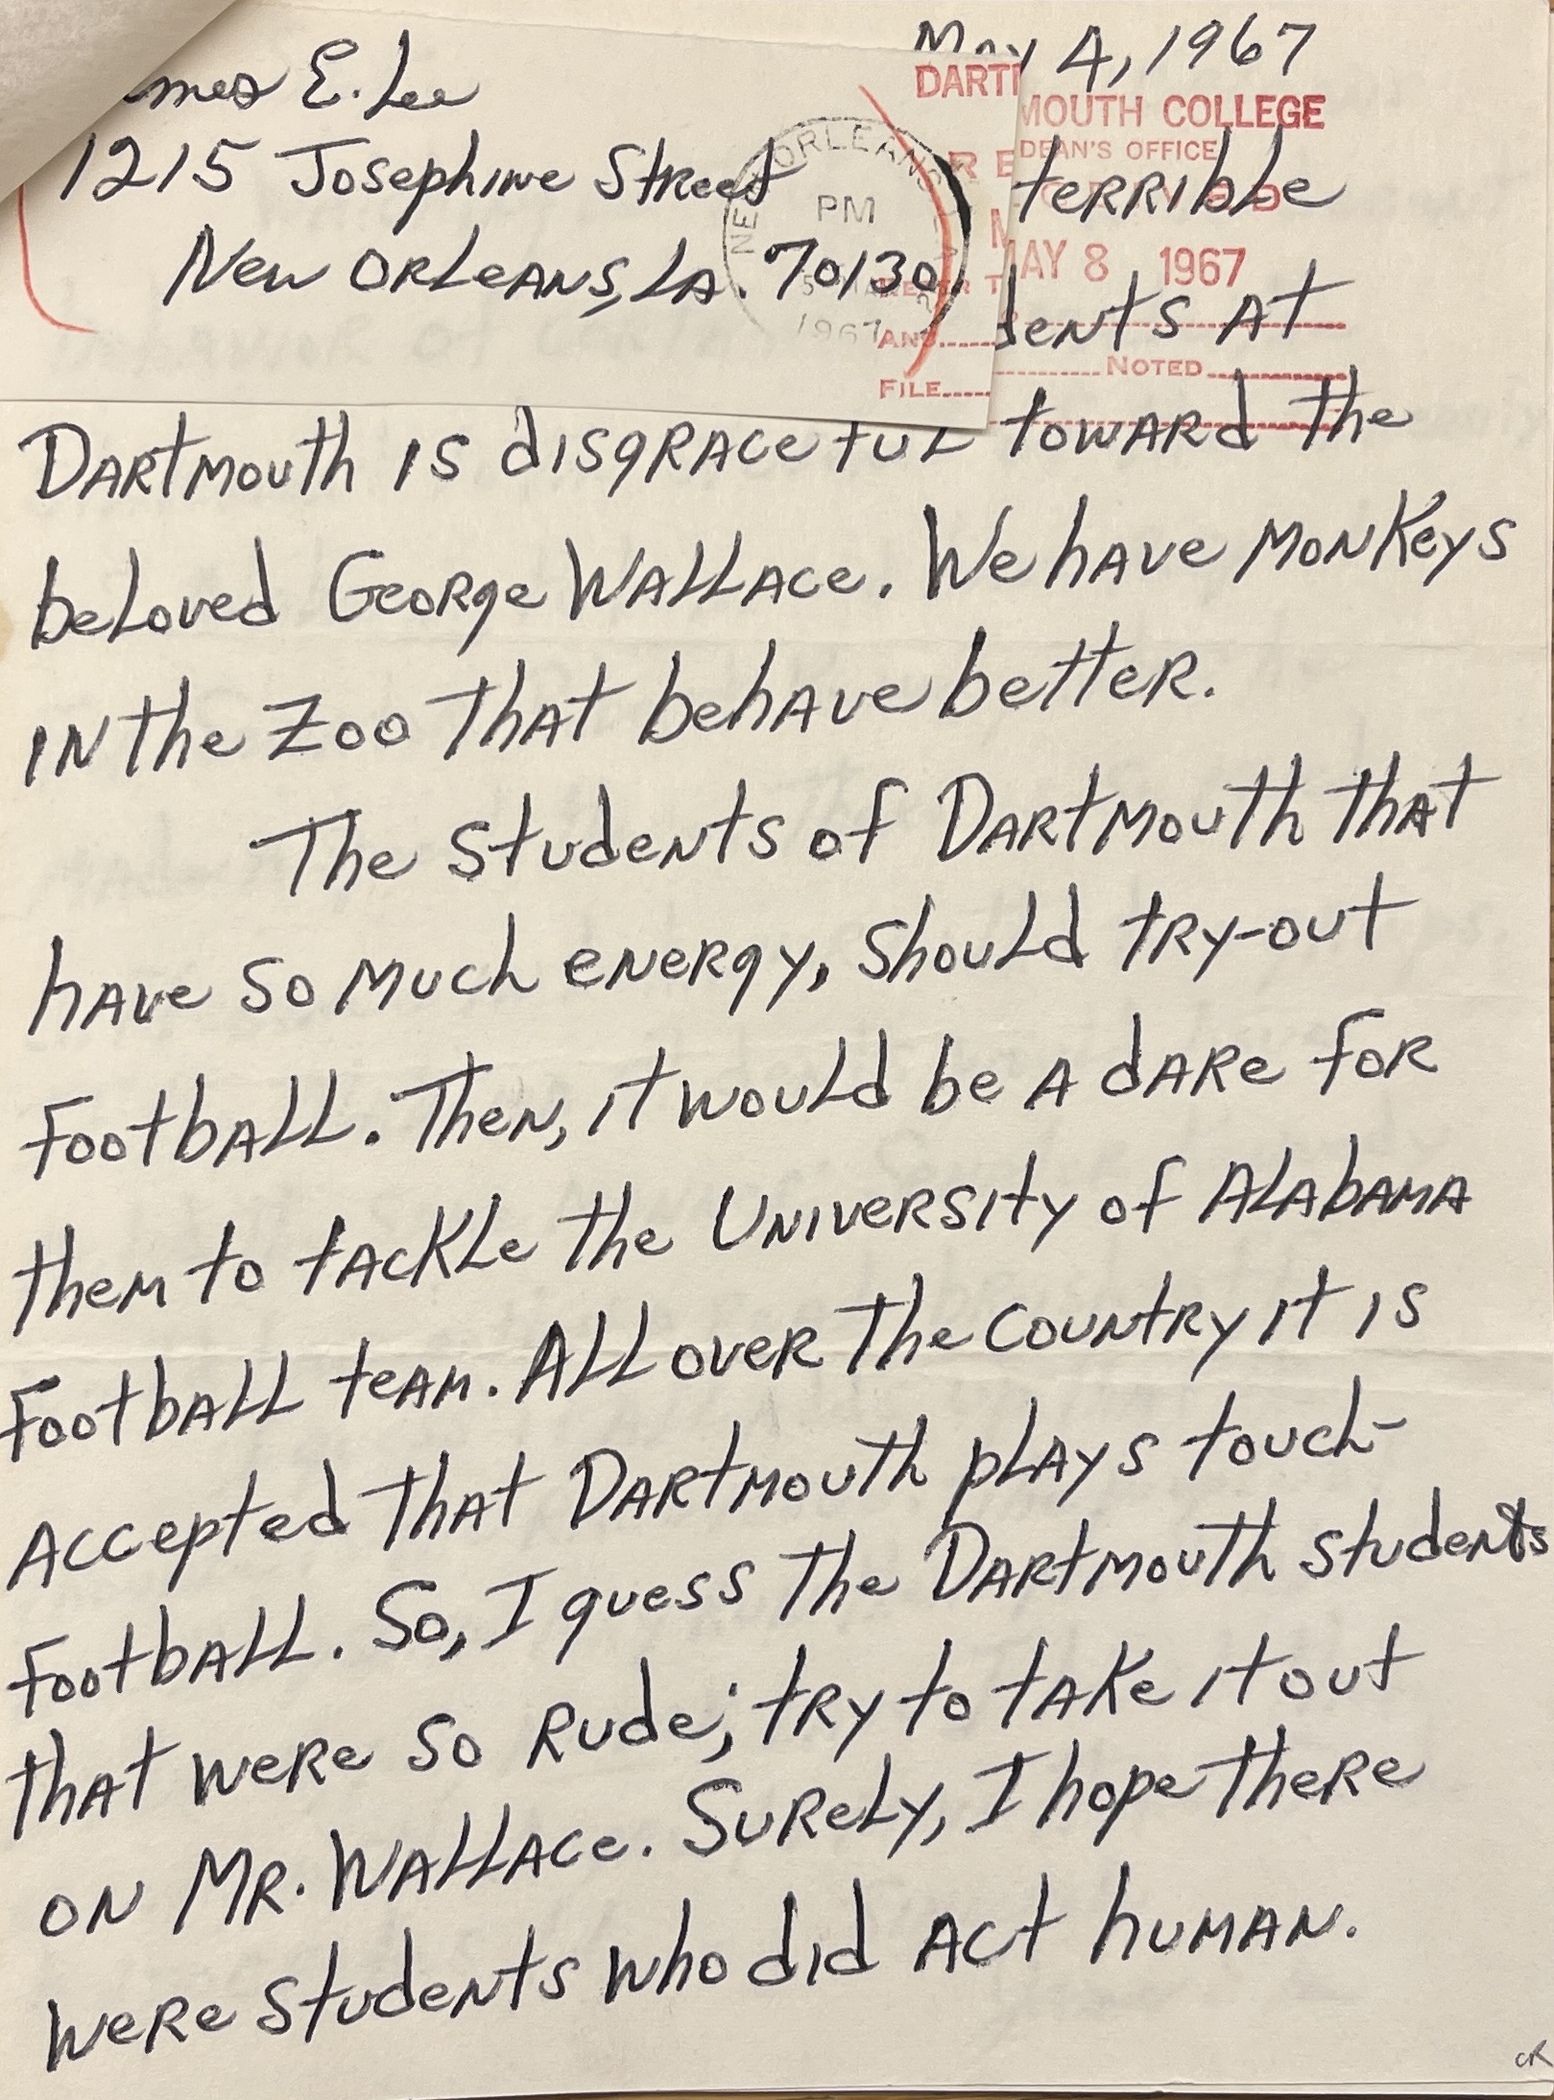 E. Lee
1215 Josephine Street
New Orleans, La. 70130
NEW ORLEANS, LA
PM
5 MAY
1967
May 4, 1967
DARTMOUTH COLLEGE
DEAN'S OFFICE
MAY 8 1967
ANS
NOTED
FILE
terrible
at
Dartmouth is disgraceful toward the
beloved George Wallace. We have monkeys
in the zoo that behave better.
The students of Dartmouth that
have so much energy, should try-out
football. Then, it would be a dare for
them to tackle the University of Alabama
football team. All over the country it is
accepted that Dartmouth plays touch-
football. So, I guess the Dartmouth students
that were so rude; try to take it out
on Mr. Wallace. Surely, I hope there
were students who did act human.
CR